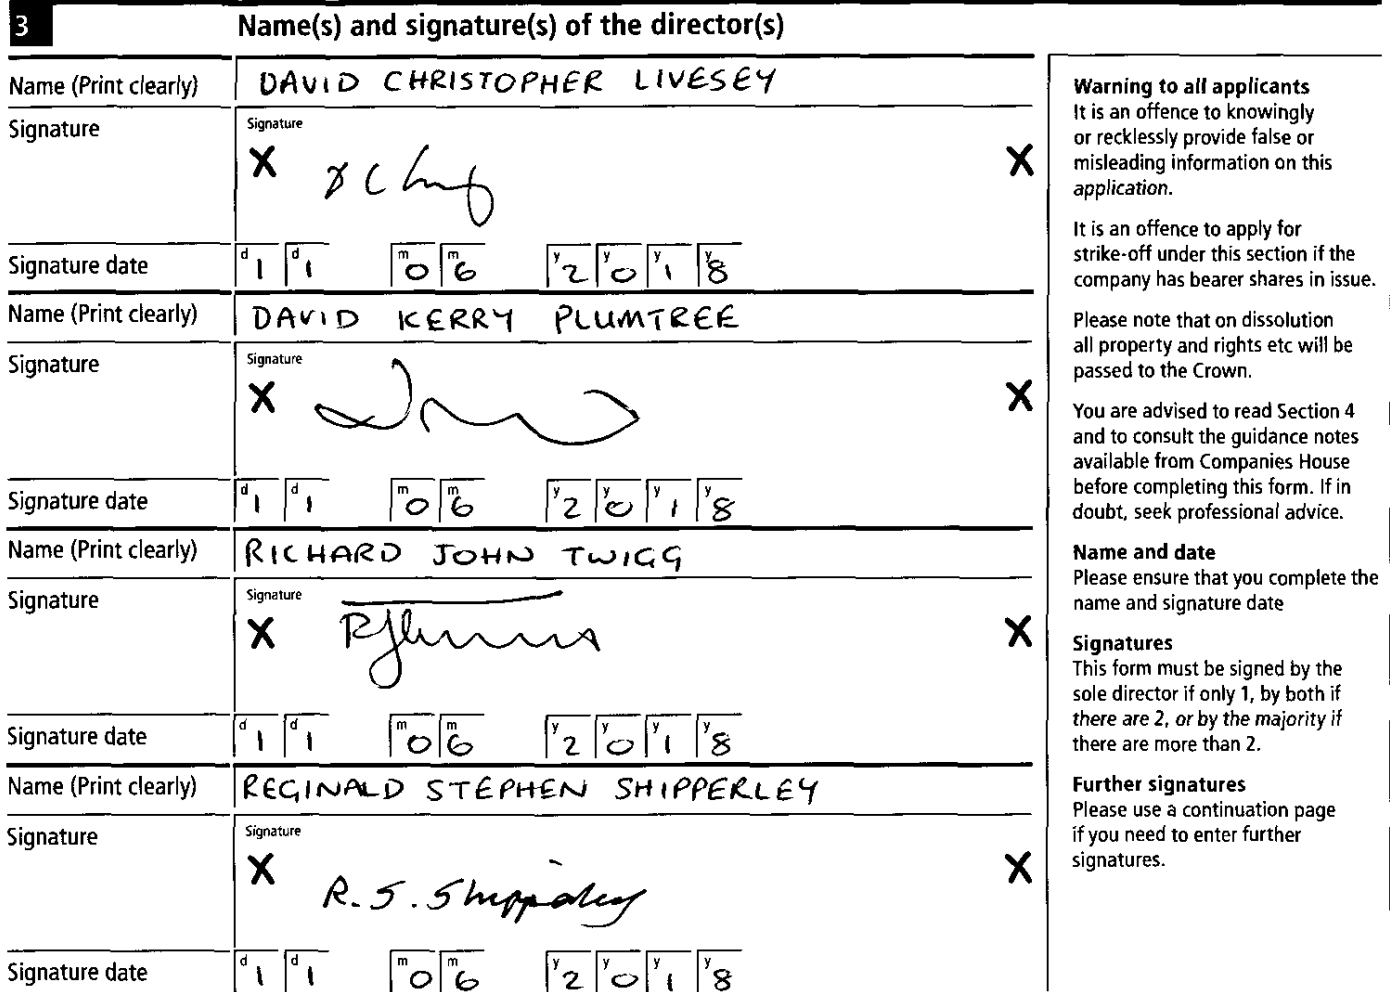 3 Name(s) and signature(s) of the director(s)
Name (Print clearly) DAVID CHRISTOPHER LIVESEY
Signature Signature
X X
Signature date d1 d1 m0 m6 y2 y0 y1 y8
Name (Print clearly) DAVID KERRY PLUMTREE
Signature Signature
X X
Signature date d1 d1 m0 m6 y2 y0 y1 y8
Name (Print clearly) RICHARD JOHN TWIGG
Signature Signature
X X
Signature date d1 d1 m0 m6 y2 y0 y1 y8
Name (Print clearly) REGINALD STEPHEN SHIPPERLEY
Signature Signature
X R. S. Shipperley X
Signature date d1 d1 m0 m6 y2 y0 y1 y8
Warning to all applicants
It is an offence to knowingly
or recklessly provide false or
misleading information on this
application.
It is an offence to apply for
strike-off under this section if the
company has bearer shares in issue.
Please note that on dissolution
all property and rights etc will be
passed to the Crown.
You are advised to read Section 4
and to consult the guidance notes
available from Companies House
before completing this form. If in
doubt, seek professional advice.
Name and date
Please ensure that you complete the
name and signature date
Signatures
This form must be signed by the
sole director if only 1, by both if
there are 2, or by the majority if
there are more than 2.
Further signatures
Please use a continuation page
if you need to enter further
signatures.